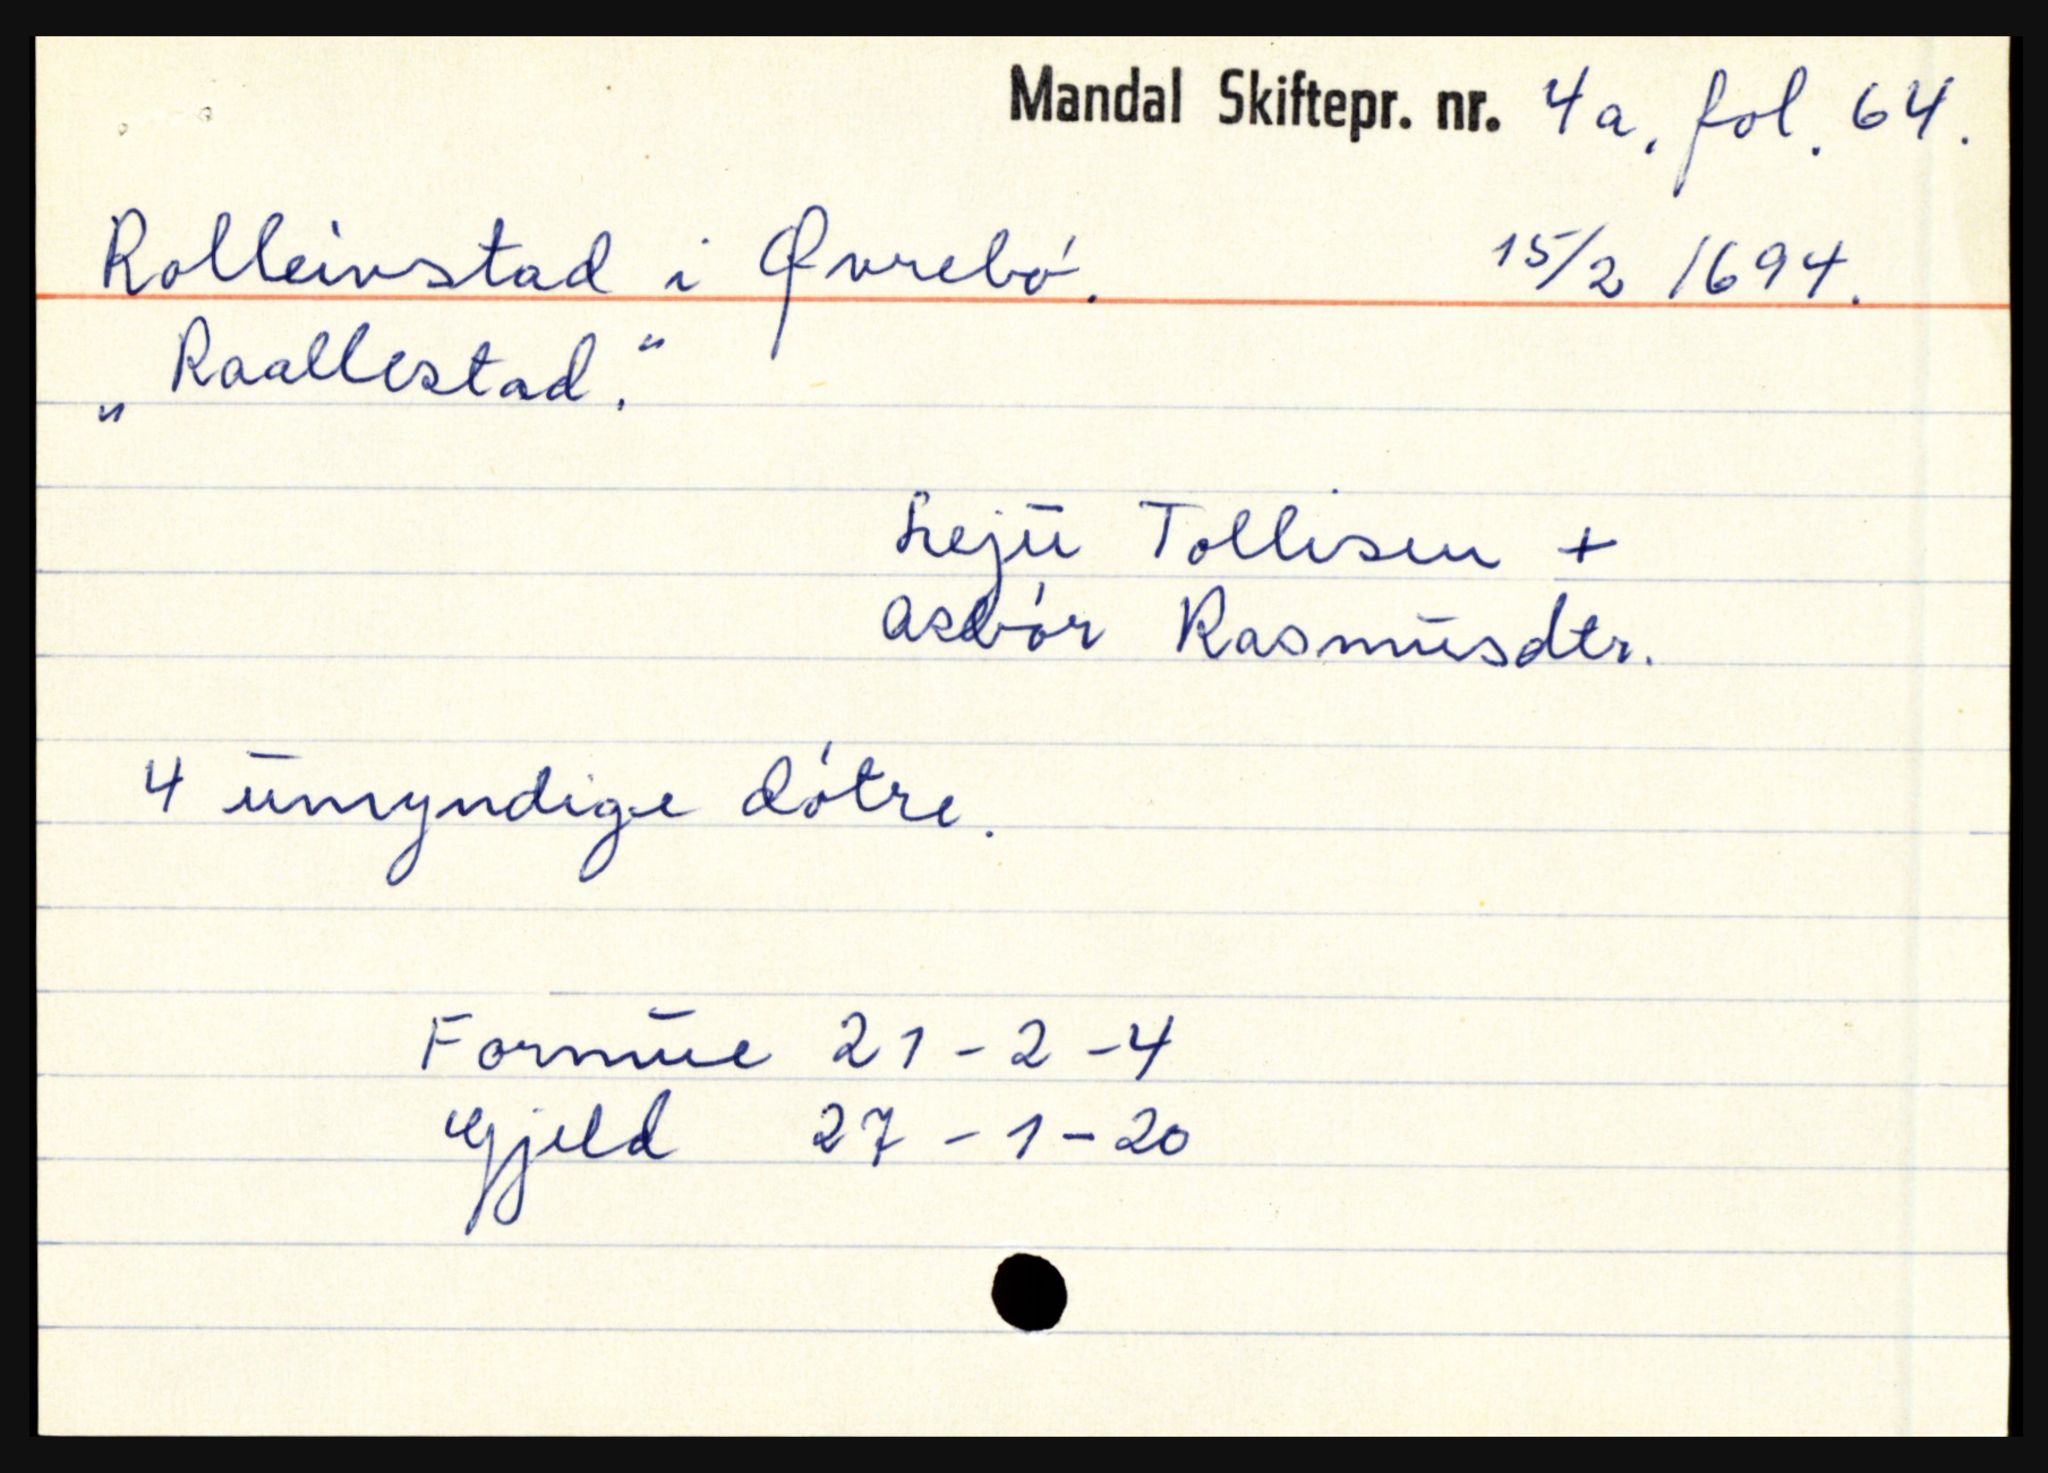 Mandal Skiftepr. nr. 4a, fol. 64.
Rolleivstad i Øvrebó. 15/2 1694.
„Raallestad.“
Lejū Tollisen +
Asbór Rasmūsdtr.
4 ūmyndige dótre.
Formūe 21-2-4
Gjeld 27-1-20